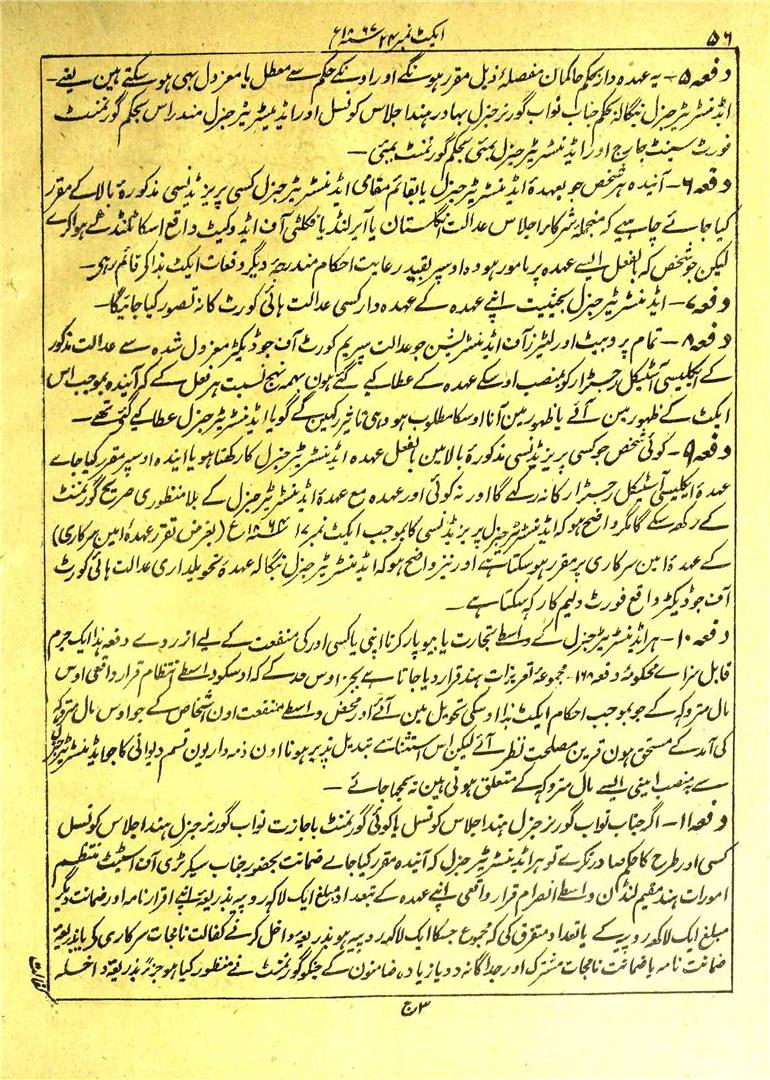 ۵۶
ایکٹ نمبر ۲۴ سنہ ۱۸۶۷ع
دفعہ ۵ - یہ عہدہ دار بحکم حاکمان مفصلۂ ذیل مقرر ہونگے اور اونکے حکم سے معطل یا معزول بہی ہو سکتے ہین یعنے -
اڈمنسٹریٹر جنرل بنگالہ بحکم جناب نواب گورنر جنرل بہادر ہند اجلاس کونسل اور اڈمنسٹریٹر جنرل مندراس بحکم گورنمنٹ
فورٹ سینٹ جارج اور اڈمنسٹریٹر جنرل بمبئی بحکم گورنمنٹ بمبئی -
دفعہ ۶ - آیندہ ہر شخص جو بعہدۂ اڈمنسٹریٹر جنرل یا بقائم مقامی اڈمنسٹریٹر جنرل کسی پریزیڈنسی مذکورۂ بالا کے مقرر
کیا جائے چاہیے کہ منجملہ شرکاے اجلاس عدالت انگلستان یا آیرلنڈ یا فکلٹی آف ایڈوکیٹ واقع اسکاٹلنڈ کے ہوا کرے
لیکن جو شخص کہ بالفعل ایسے عہدہ پر مامور ہو وہ اوسپر بقید رعایت احکام مندرجۂ دیگر دفعات ایکٹ ہذا کے قائم رہی -
دفعہ ۷ - ایڈمنسٹریٹر جنرل بحیثیت اپنے عہدہ کے عہدہ دار کسی عدالت ہائی کورٹ کا نہ تصور کیا جائیگا -
دفعہ ۸ - تمام پروبیٹ اور لیٹرز آف اڈمنسٹریشن جو عدالت سپریم کورٹ آف جوڈیکچر معزول شدہ سے عدالت مذکور
کے ایکلیسی آسٹیکل رجسٹرار کو بمنصب اوسکے عہدہ کے عطا کیے گئے ہون بہمہ نہج نسبت ہر فعل کے کہ آیندہ بموجب اس
ایکٹ کے ظہور مین آئے یا ظہور مین آنا اوسکا مطلوب ہو وہی تاثیر رکہین گے گویا اڈمنسٹریٹر جنرل عطا کیے گئے تھے -
دفعہ ۹ - کوئی شخص جو کسی پریزیڈنسی مذکورۂ بالا مین بالفعل عہدہ اڈمنسٹریٹر جنرل کا رکھتا ہو یا آیندہ اوسپر مقرر کیا جاے
عہدۂ ایکلیسی آسٹیکل رجسٹرار کا نہ رکہے گا اور نہ کوئی اور عہدہ مع عہدۂ اڈمنسٹریٹر جنرل کے بلا منظوری صریح گورنمنٹ
کے رکھ سکے گا مگر واضح ہو کہ اڈمنسٹریٹر جنرل پریزیڈنسی کا بموجب ایکٹ نمبر ۱۷ سنہ ۱۸۶۴ع (بغرض تقرر عہدۂ امین سرکاری)
کے عہدۂ امین سرکاری پر مقرر ہو سکتا ہے اور نیز واضح ہو کہ اڈمنسٹریٹر جنرل بنگالہ عہدۂ تحویلداری عدالت ہائی کورٹ
آف جوڈیکچر واقع فورٹ ولیم کا رکہ سکتا ہے -
دفعہ ۱۰ - ہر اڈمنسٹریٹر جنرل کے واسطے تجارت یا بیوپار کرنا اپنی یا کسی اور کی منفعت کے لیے از روے دفعہ ہذا ایک جرم
قابل سزاے محکومۂ دفعہ ۱۶۸ - مجموعۂ تعزیرات ہند قرار دیا جاتا ہے بجز اوس حد کے کہ اوسکو واسطے انتظام قرار واقعی اوس
مال متروکہ کے جو بموجب احکام ایکٹ ہذا اوسکی تحویل مین آئے اور محض واسطے منفعت اون اشخاص کے جو اوس مال متروکہ
کی آمد کے مستحق ہون قرین مصلحت نظر آئے لیکن اس استثنا سے تبدیل پذیر ہونا اون ذمہ داریون قسم دیوانی کا جو ایڈمنسٹریٹر جنرل
سے بمنصب امینی ایسے مال متروکہ کے متعلق ہوتی ہین نہ سمجہا جائے -
دفعہ ۱۱ - اگر جناب نواب گورنر جنرل ہند اجلاس کونسل یا کوئی گورنمنٹ باجازت نواب گورنر جنرل ہند اجلاس کونسل
کسی اور طرح کا حکم صادر نکرے تو ہر اڈمنسٹریٹر جنرل کہ آئندہ مقرر کیا جاے ضمانت بحضور جناب سیکرٹری آف اسٹیٹ منتظم
امورات ہند مقیم لنڈن واسطے انصرام قرار واقعی اپنے عہدہ کے بتعداد مبلغ ایک لاکہ روپیہ بذریعۂ اپنے اقرارنامہ اور ضمانت دیگر
مبلغ ایک لاکہ روپیہ کے یا تعداد متفرق کی کہ مجموع جسکا ایک لاکہ روپیہ ہو بذریعۂ داخل کرنے کفالت نامجات سرکاری کے یا بذریعۂ
ضمانت نامہ یا ضمانت نامجات مشترک اور جداگانہ دو یا زیادہ ضامنون کے جنکو گورنمنٹ نے منظور کیا ہو جزءً بذریعۂ داخلہ
۳ ج